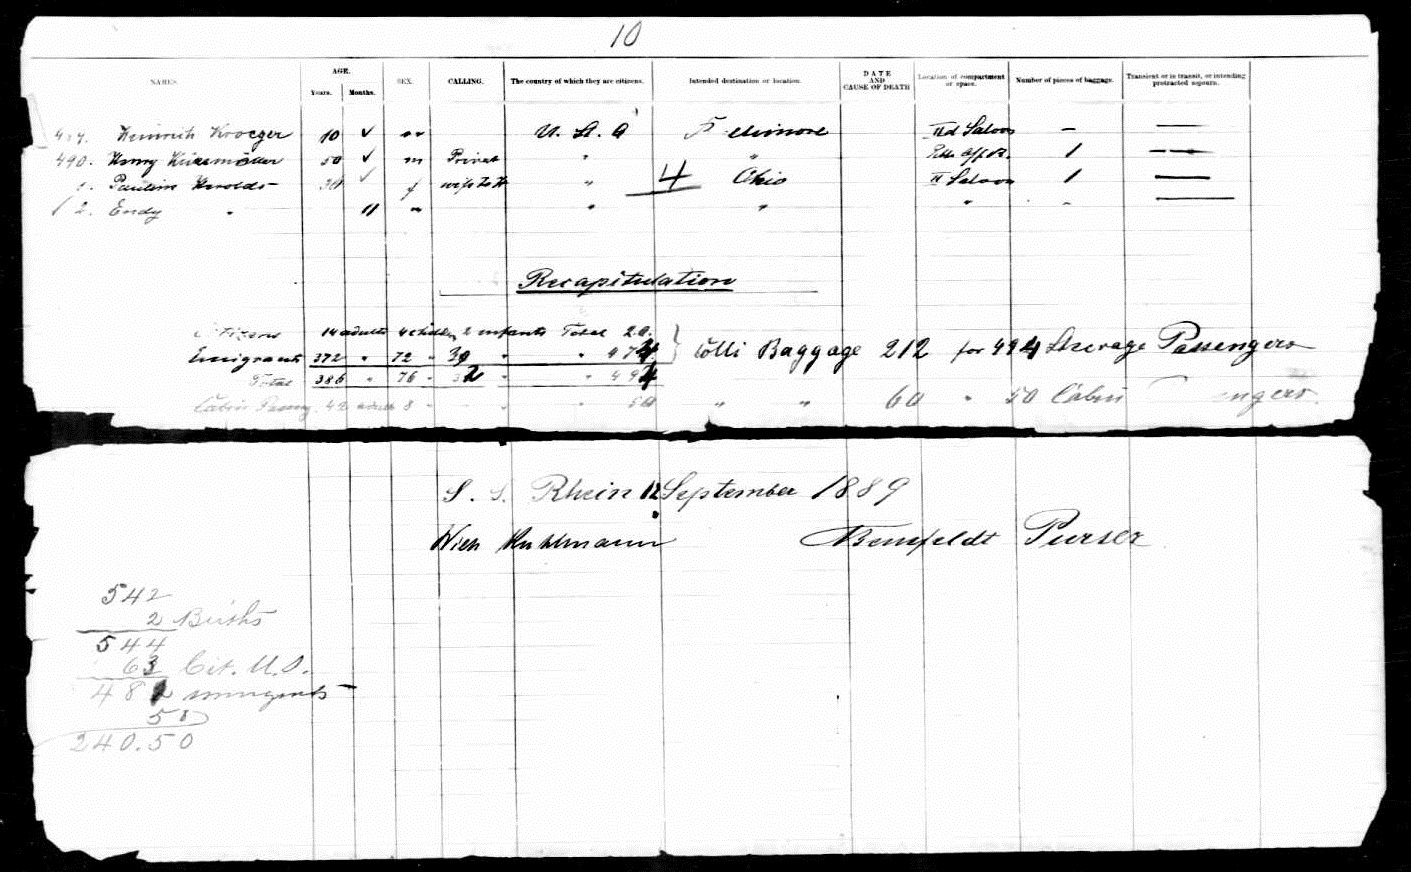 10
NAMES. AGE. Years. Months. SEX. CALLING. The country of which they are citizens. Intended destination or location. DATE AND CAUSE OF DEATH Location of compartment or space. Number of pieces of baggage. Transient or in transit, or intending protracted sojourn.
Heinrich Kroeger 10 ✓ " U. S. A IId Saloon —
490. Henry 50 ✓ m Privat " " 1
Pauline Herolds 30 ✓ f wife to H " 4 Ohio II Saloon 1 —
2. Endy " 11 " " " " —
Recapitulation
Citizens 14 adults 4 children 2 infants Total 20.
Emigrants 372 " 72 " 30 " " 474 } Colli Baggage 212 for 494 Steerage Passengers
Total 386 " 76 " 32 " " 494
Cabin Passeng. 42 adults 8 " " " 50 " " 60 " 50 Cabin
S. S. Rhein 12 September 1889
Kuhlmann Purser
542
2 Births
544
63 Cit. U.S.
482 immigrants
50
240.50